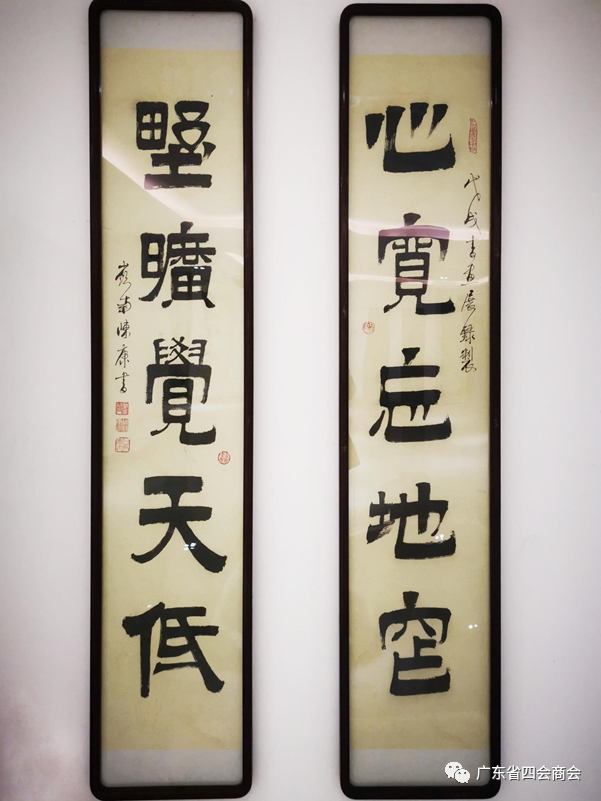 戊戌書画展錄製
心寬忘地窄
野曠覺天低
嶺南陳康書
广东省四会商会